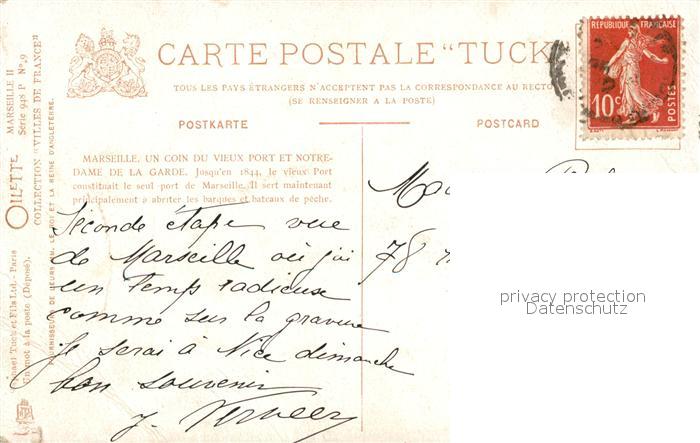 CARTE POSTALE "TUCK
TOUS LES PAYS ÉTRANGERS N'ACCEPTENT PAS LA CORRESPONDANCE AU RECTO
(SE RENSEIGNER A LA POSTE)
POSTKARTE
POSTCARD
RÉPUBLIQUE FRANÇAISE
10c
POSTES
MARSEILLE, UN COIN DU VIEUX PORT ET NOTRE-
DAME DE LA GARDE. Jusqu'en 1844, le vieux Port
constituait le seul port de Marseille. Il sert maintenant
principalement à abriter les barques et bateaux de pêche.
Seconde étape vue
de Marseille où j'ai
un temps radieuse
comme sur la gravure
je serai à Nice dimanche
bon souvenir
78
privacy protection
Datenschutz
OILETTE
MARSEILLE II
Série 948 P No 9
COLLECTION "VILLES DE FRANCE"
Raphael Tuck et Fils Ltd.- Paris
Un mot à la poste (Déposé).
FOURNISSEURS DE LEURS MM. LE ROI ET LA REINE D'ANGLETERRE.